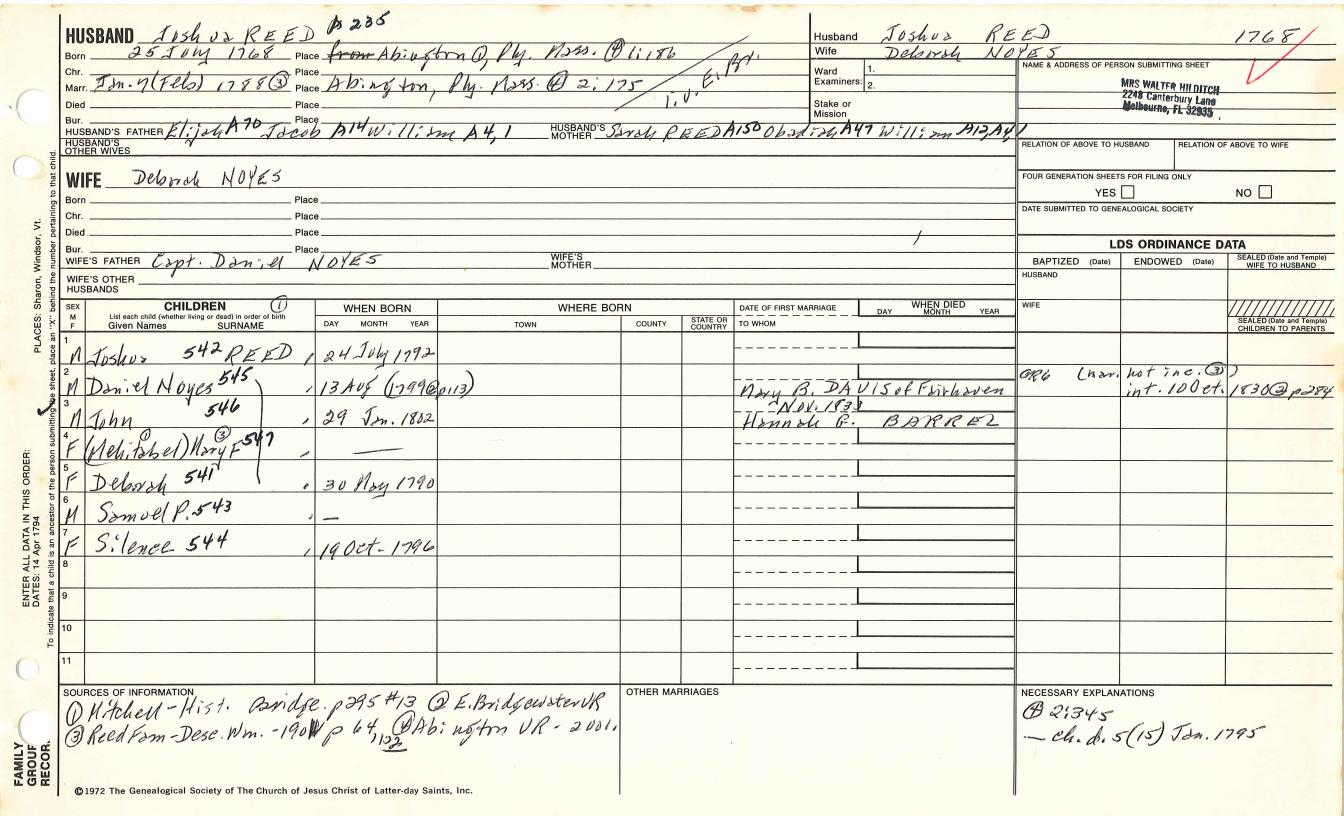 HUSBAND Joshua REED p 235
Born 25 July 1768 Place from Abington ①, Ply. Mass. ④ 1:186
Chr. Place
Marr. Jan. 7 (Feb 5) 1788 ③ Place Abington, Ply. Mass. ④ 2:175
Died Place
Bur. Place
i.v. E. Br.
HUSBAND'S FATHER Elijah A70 Jacob A14 William A4,1 HUSBAND'S MOTHER Sarah REED A150 Obadiah A47 William A12, A4,1
HUSBAND'S OTHER WIVES
Husband Joshua REED 1768
Wife Deborah NOYES
Ward Examiners: 1.
2.
Stake or Mission
NAME & ADDRESS OF PERSON SUBMITTING SHEET
MRS WALTER HILDITCH
2248 Canterbury Lane
Melbourne, FL 32935
RELATION OF ABOVE TO HUSBAND RELATION OF ABOVE TO WIFE
FOUR GENERATION SHEETS FOR FILING ONLY
YES NO
DATE SUBMITTED TO GENEALOGICAL SOCIETY
WIFE Deborah NOYES
Born Place
Chr. Place
Died Place
Bur. Place
WIFE'S FATHER Capt. Daniel NOYES WIFE'S MOTHER
WIFE'S OTHER HUSBANDS
LDS ORDINANCE DATA
BAPTIZED (Date) ENDOWED (Date) SEALED (Date and Temple) WIFE TO HUSBAND
HUSBAND
WIFE
SEALED (Date and Temple) CHILDREN TO PARENTS
SEX M F
CHILDREN ①
List each child (whether living or dead) in order of birth
Given Names SURNAME
WHEN BORN
DAY MONTH YEAR
WHERE BORN
TOWN COUNTY STATE OR COUNTRY
DATE OF FIRST MARRIAGE
TO WHOM
WHEN DIED
DAY MONTH YEAR
1 M Joshua 542 REED, 24 July 1792
2 M Daniel Noyes 545, 13 Aug (1799 ② p113) Mary B. DAVIS of Fairhaven GR6 (mar. not inc. ③)
int. 10 Oct. 1830 ③ p284
3 M John 546, 29 Jan. 1802 Nov. 1833
Hannah G. BARREL
4 F (Mehitabel) ① Mary F ③ 547, —
5 F Deborah 541, 30 May 1790
6 M Samuel P. 543, —
7 F Silence 544, 19 Oct - 1796
8
9
10
11
SOURCES OF INFORMATION
① Mitchell - Hist. Bridge. p295 #13 ② E. Bridgewater VR
③ Reed Fam - Desc. Wm. - 1901 p 64, 122 ④ Abington VR - 2 vol.
OTHER MARRIAGES
NECESSARY EXPLANATIONS
④ 2:345
— ch. d. 5 (15) Jan. 1795
©1972 The Genealogical Society of The Church of Jesus Christ of Latter-day Saints, Inc.
FAMILY GROUP RECOR.
ENTER ALL DATA IN THIS ORDER:
DATES: 14 Apr 1794
PLACES: Sharon, Windsor, Vt.
To indicate that a child is an ancestor of the person submitting the sheet, place an "X" behind the number pertaining to that child.